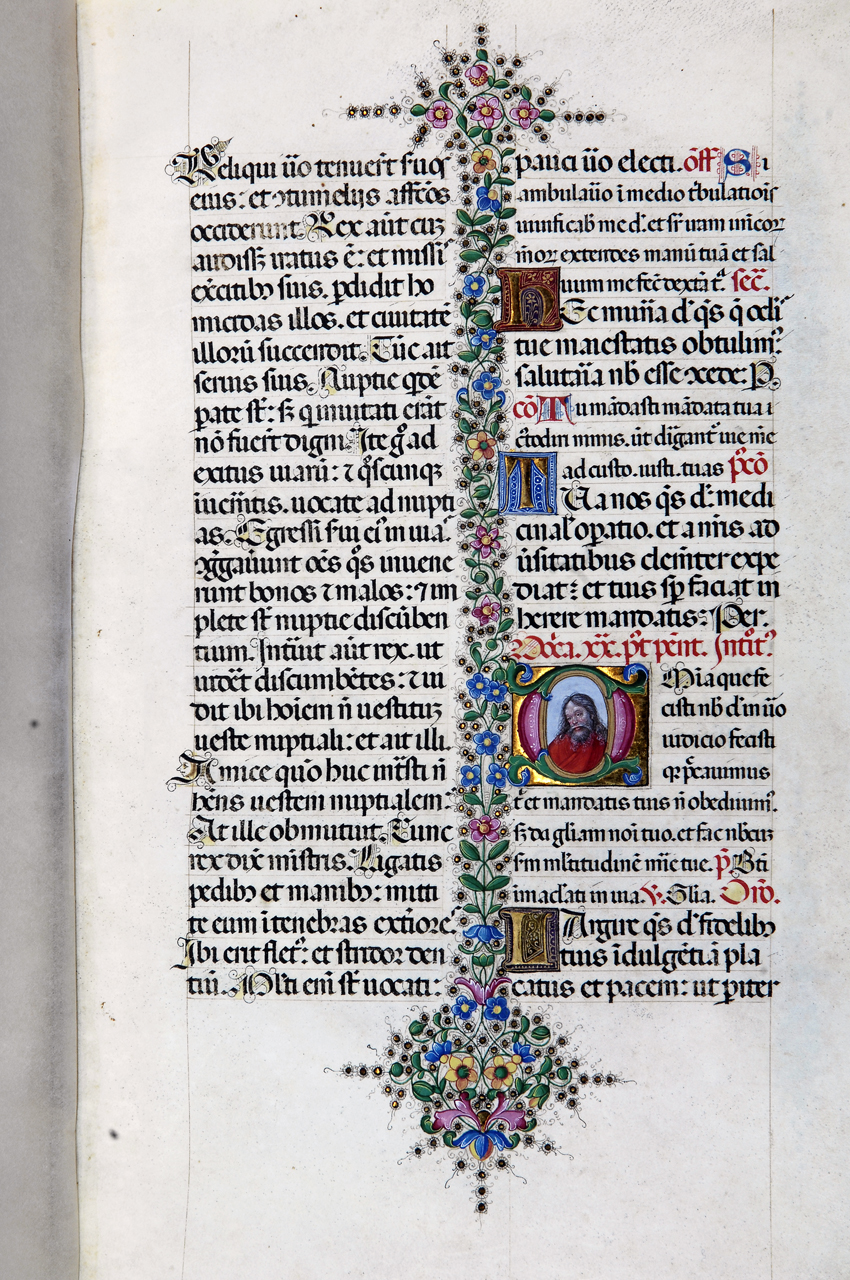 Reliqui ṽo tenuer̃t suos
eius: et ɔtumelijs affc̃os
occiderunt. Rex aũt cũ
audiss; iratus ẽ: et missis
exc̃itib3 suis. p̱didit ho
micidas illos. et ciuitatẽ
illorũ succendit. Tũc ait
seruis suis. Nuptie qͥdẽ
parate st̃: s; qͥ inuitati erãt
nõ fuer̃t digni. Ite g̊ ad
exitus uiarũ: ⁊ qͦscunq3
inuen̾itis. uocate ad nupti
as. Egressi serui eiꝰ in uias.
ɔg̃gauer̃unt oẽs qͦs inuene
runt bonos ⁊ malos: ⁊ im
plete st̃ nuptie discũben
tium. Intrauit aũt rex. ut
uider̃t discumbẽtes: ⁊ ui
dit ibi hoĩem ñ uestitũ
ueste nuptiali: et ait illi.
Amice quõ huc intᵃsti ñ
hñs uestem nuptialem:
At ille obmutuit. Tunc
rex dix̃ ministris. Ligatis
pedib3 et manib3: mitti
te eum ĩ tenebras ext̾iores
Ibi erit fletꝰ: et stridor den
tiũ. Multi em̃ st̃ uocati:
pauci ṽo electi. off̃ Si
ambulauero ĩ medio tribulatiois
uiuificab̾ me dñe: et sr̃ iram inimicor
meor̃ extendes manũ tuã et sal
uum me fec̃ dext̾a tᵃ. sec̃.
Hec mun̾a dñe qs̃ q̃ oclis̃
tue maiestatis obtulimꝰ:
salutaria nob̃ esse ɔcede: P.
cõ Tu mãdasti mãdata tua
custodiri nimis. ut dirigant̃ uie mee
ad custo. iusti. tuas p̃cõ
Tua nos qs̃ dñe: medi
cinal̾ op̱atio. et a nr̃is ad
ũsitatibus clementer expe
diat: et tuis semp̱ faciat in
herere mandatis: Per.
Dñica. xx. pꝰt pent. Introitꝰ
Omnia que fe
cisti nob̃ dñe in ṽo
iudicio fecisti
qͥ peccauimus
t̾ et mandatis tuis ñ obediuimꝰ.
s; da gliam noĩ tuo. et fac nobiscũ
sm̃ mltitudinẽ mĩe tue. p̃ Bt̃i
imaclãti in uia. V̾. Glia. Orõ.
Largire qs̃ dñe fidelib3
tuis ĩdulgẽtiã pla
catus et pacem: ut p̱iter